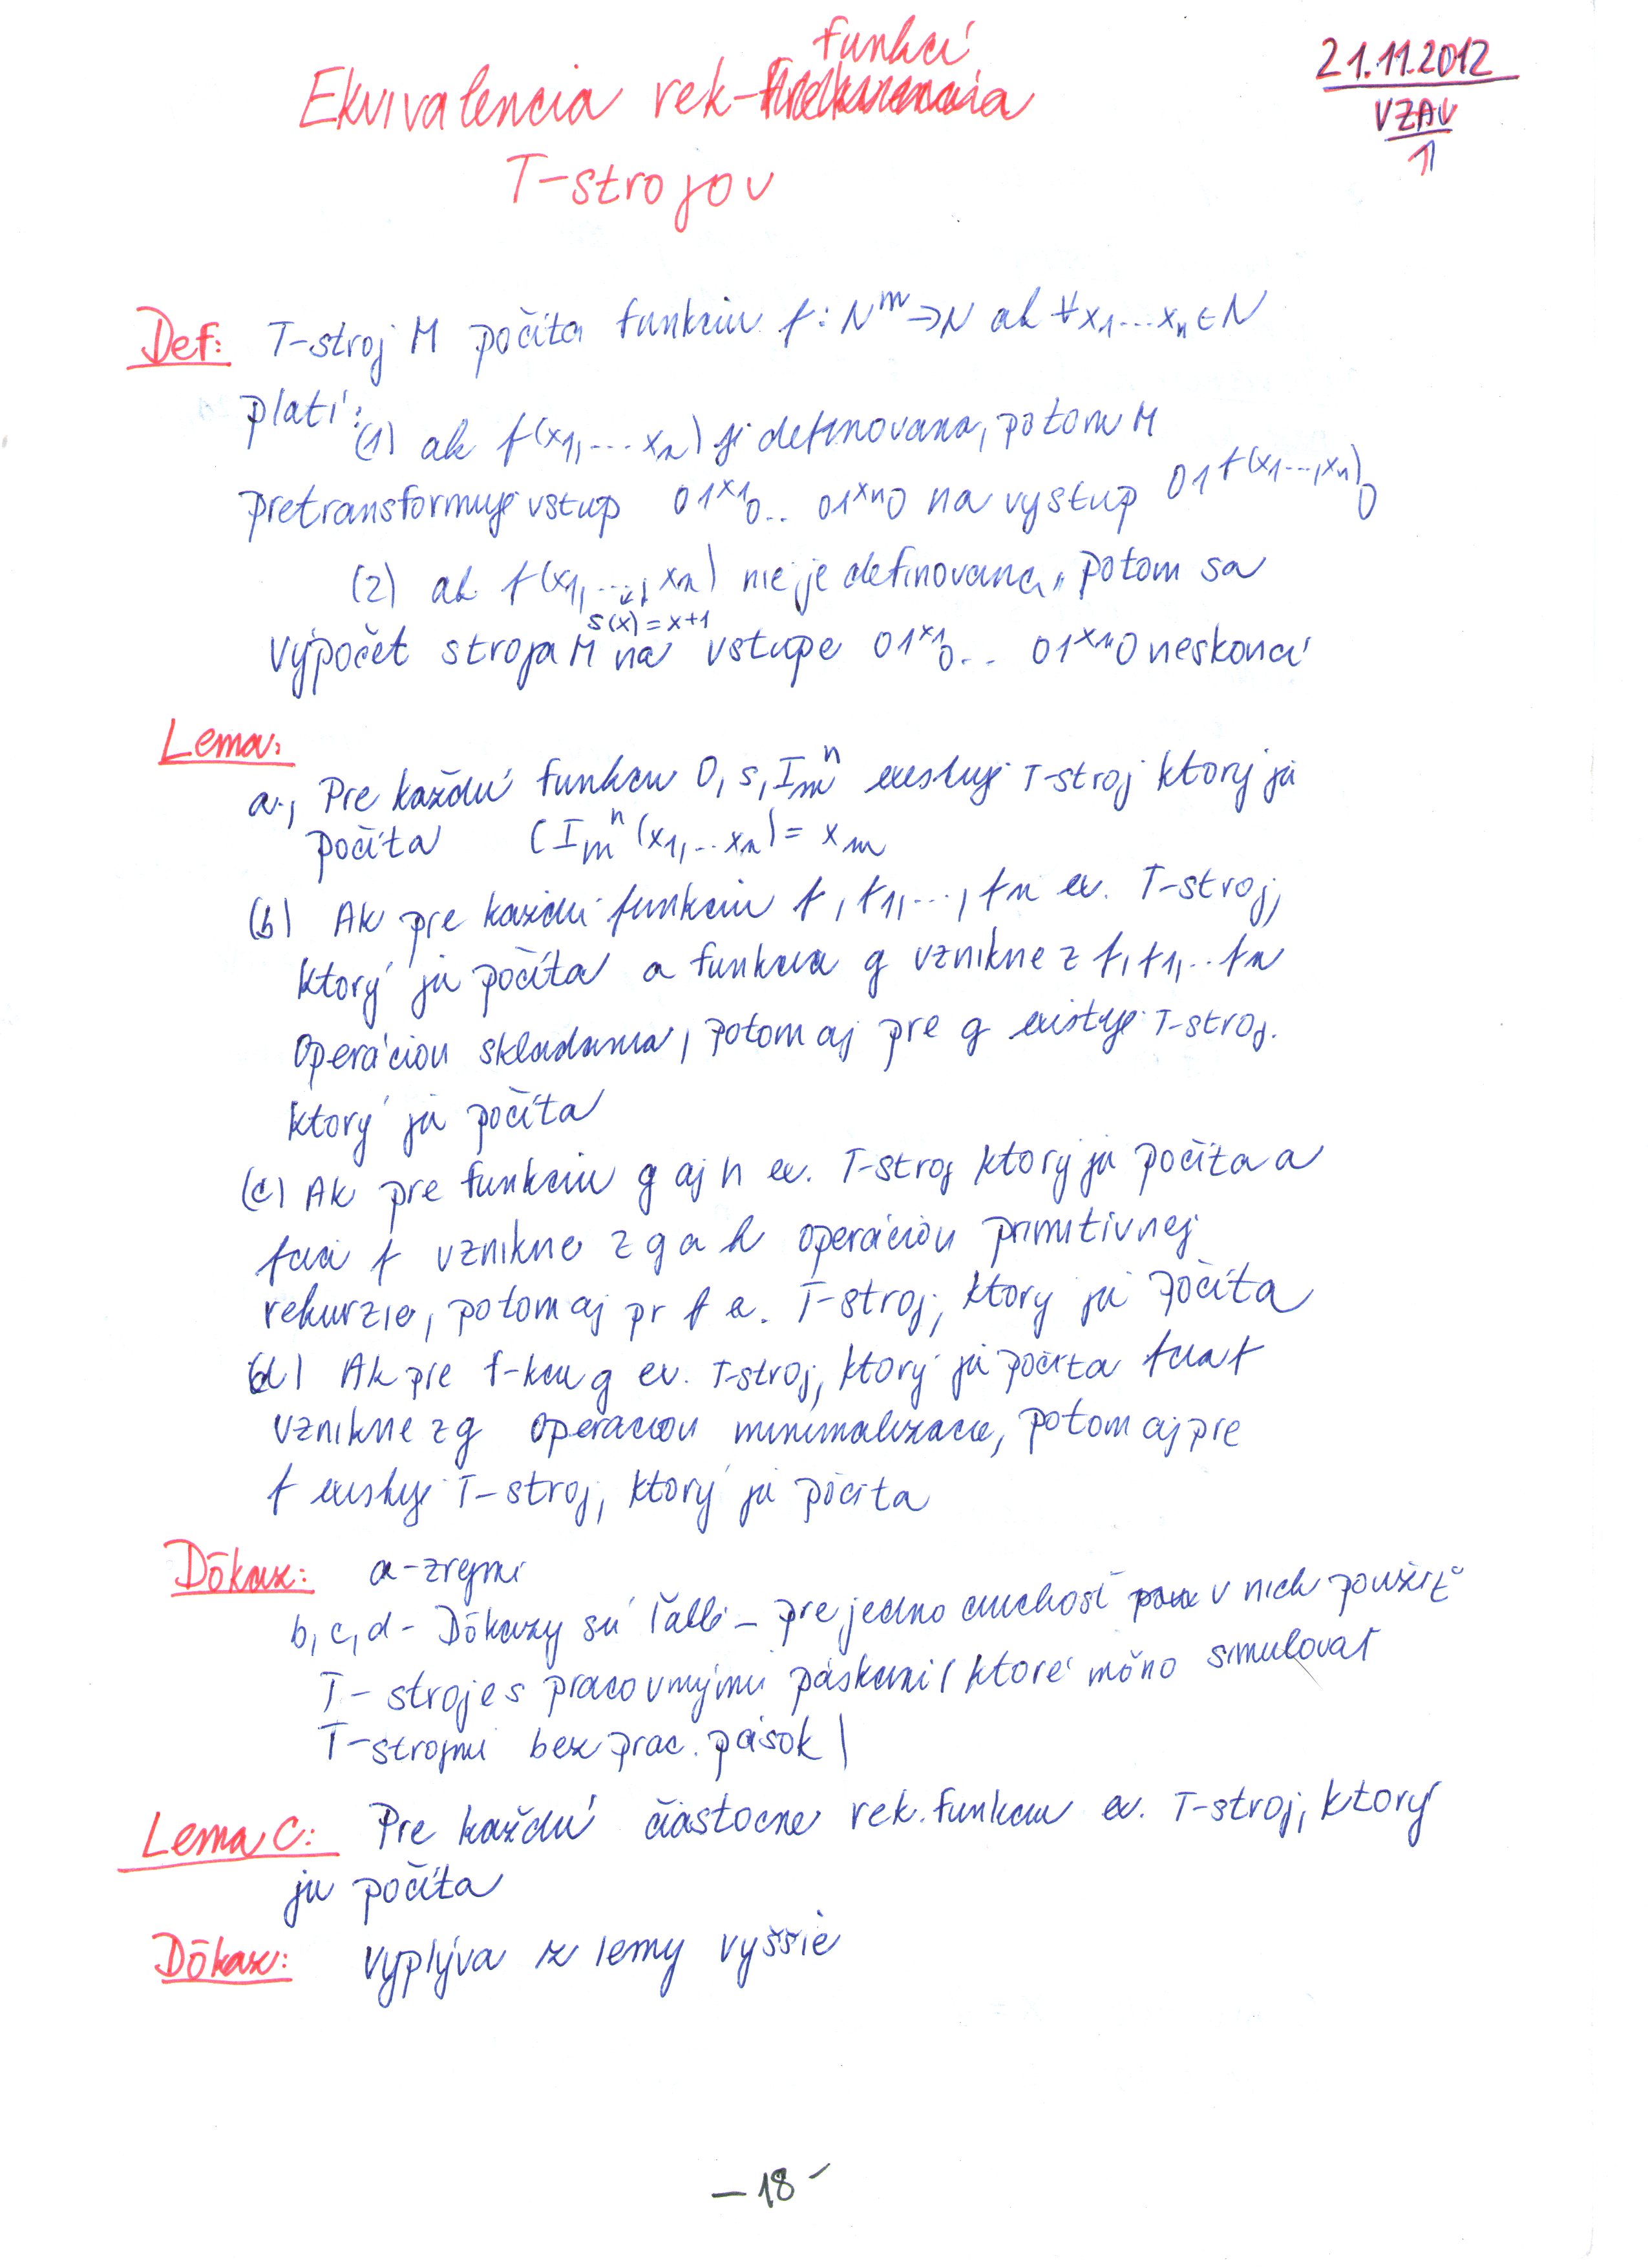 funkcí
Ekvivalencia rek-
T-strojov
21.11.2012
VZAV
1
Def: T-stroj M počíta funkciu f: N^m → N ak ∀ x1...xn ∈ N
platí:
(1) ak f(x1,...xn) je definovana, potom M
pretransformuje vstup 01^x1 0.. 01^xn 0 na vystup 01^f(x1...,xn) 0
(2) ak f(x1,..., xn) nie je definovana, potom sa
s(x)=x+1
výpočet stroja M na vstupe 01^x1 0.. 01^xn 0 neskončí
Lema:
a., Pre každú funkciu 0, s, I_m^n existuje T-stroj ktorý ju
počíta (I_m^n (x1,..xn) = xm
(b) Ak pre každú funkciu f, f1,..., fn ex. T-stroj,
ktorý ju počíta a funkcia g vznikne z f, f1,..fn
operáciou skladania, potom aj pre g existuje T-stroj.
ktorý ju počíta
(c) Ak pre funkciu g aj h ex. T-stroj ktorý ju počíta a
fcia f vznikne z g a h operáciou primitívnej
rekurzie, potom aj pr f e. T-stroj, ktorý ju počíta
(d) Ak pre f-kciu g ex. T-stroj, ktorý ju počíta fcia f
vznikne z g operaciou minimalizacie, potom aj pre
f existuje T-stroj, ktorý ju počíta
Dôkaz: a-zrejmé
b, c, d - Dôkazy sú - pre jedno duchosť v nich použiť
T-stroje s pracovnými páskami ( ktoré môno simulovať
T-strojmi bez prac. pások )
Lema C: Pre každú čiastocne rek. funkciu ex. T-stroj, ktorý
ju počíta
Dôkaz: vyplýva z lemy vyššie
- 18 -